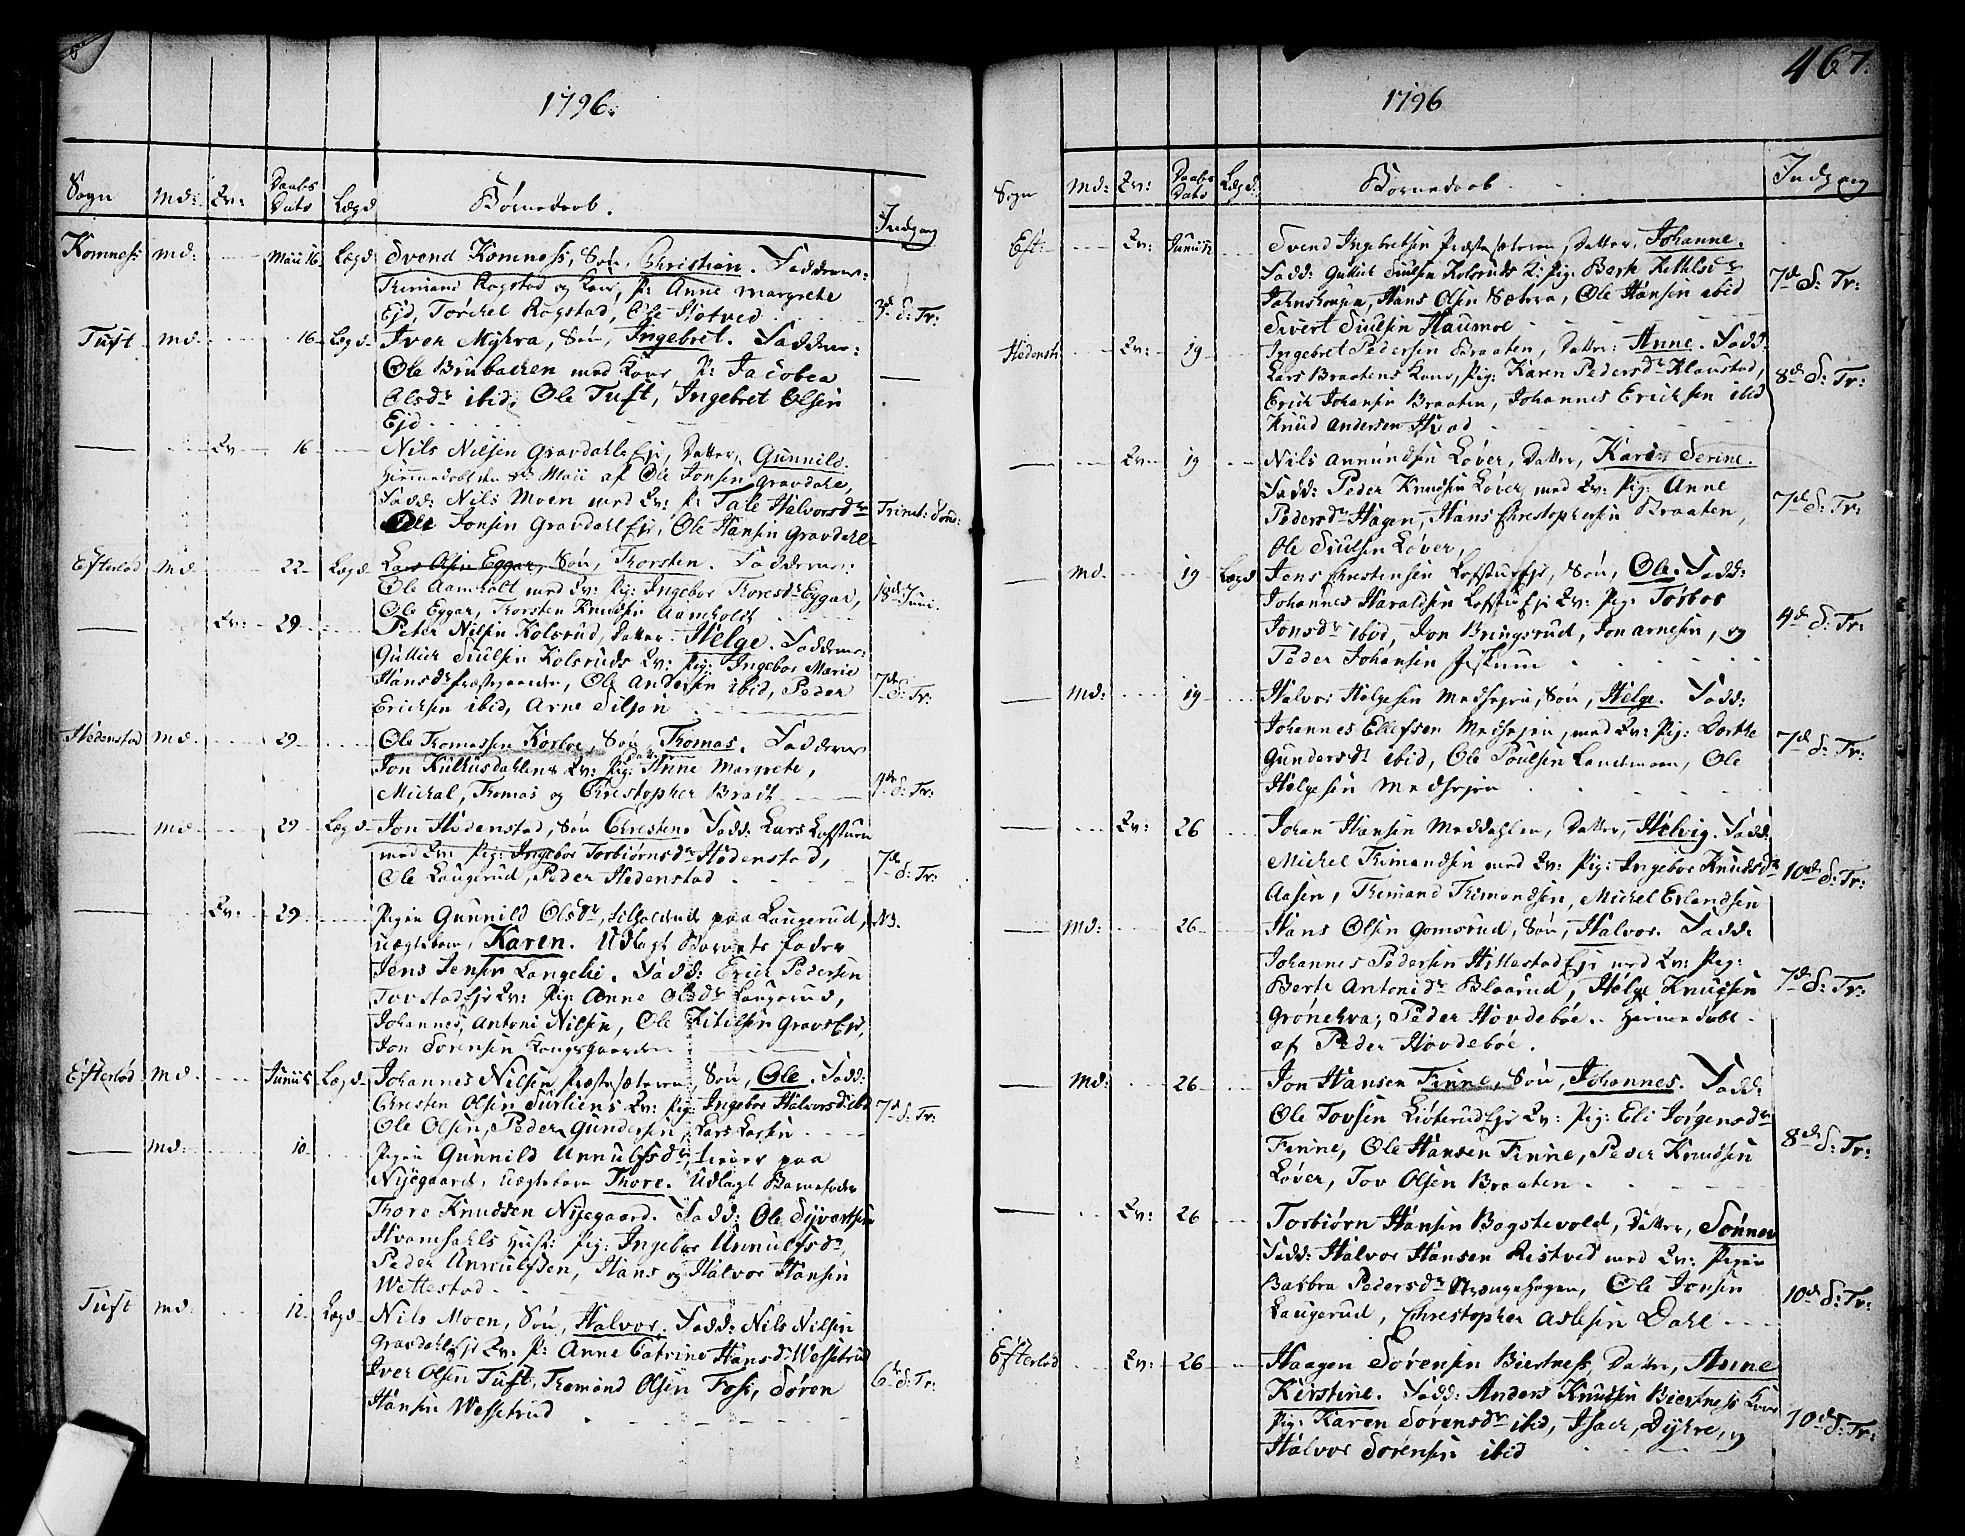 1796.
Sogn Md: Qv: Daabs Dato Lægd Børnedaab. Indgang
Komness Md: Maii 16 Lægd Svend Komness, Søn, Christian. Faddere:
Trimand Rogstad og Kone, P: Anne Margrete
Ejd, Torchel Rogstad, Ole Hotved
3d S: Tr:
Tuft Md. 16 Lægd Iver Myhra, Søn, Ingebret. Faddere:
Ole Brubachen med Kone P: Jacobea
Olsdr ibid, Ole Tuft, Ingebret Olsen
Ejd
Qv 16 Nils Nilsen Gravdahl Ejr, Datter, Gunnild.
Hiemmedøbt den Maii af Ole Jonsen Gravdahl,
Fadd: Nils Moen med Qv: P: Tale Halvorsdr
Ole Jonsen Gravdahl Ejr, Ole Hansen Gravdahl
Trinit: Sønd:
Efterlød Md 22 Lægd Lars Olsen Eggar, Søn, Thorsten. Faddere:
Ole Aamholt med Qv: Pig: Ingebor Thoresdr Eggar,
Ole Eggar, Thorsten Knudsen Aamholdt
18d Juni.
Qv: 29 Peter Nilsen Kolsrud, Datter, Helge. Faddere:
Guttich Siulsen Kolsruds Qv: Pig: Ingebor Marie
Hansdr Præstegaarden, Ole Andersen ibid, Peder
Ericksen ibid, Arne Siljan
7d S: Tr:
Hedenstad Md. 29 Ole Thomassen Korboe, Søn Thomas. Faddere
Jon Kulkusdahlens Qv: Pig: Anne Margrete,
Michal, Thomas og Christopher Bradt
S: Tr:
Md 29 Lægd Jon Hedenstad, Søn Christen. Fadd: Lars Loftuen
med Qv: Pig: Ingebor Torbiørnsdr Hedenstad,
Ole Laugerud, Peder Hedenstad
7d S: Tr:
Qv: 29 Pigen Gunnild Olsdr, tilholdend paa Laugerud,
uægteborn, Karen. Udlagt Barnets Fader
Jens Jensen Langelie. Fadd: Erich Pedersen
Tovstad Ejr Qv: Pig: Anne Olsdr Laugerud,
Johannes, Antoni Nilsen, Ole Kitilsen Gravs Ejr,
Jon Sørensen Kongsgaarden
NB.
Efterlød Md. Junii 5 Lægd Johannes Nilsen Præstesæteren, Søn, Ole. Fadd:
Christen Olsen Surliens Qv: Pig: Ingebor Halvorsdr ibid
Ole Olsen, Peder Gundersen, Lars Larsen
7d S: Tr:
Md: 10 Pigen Gunnild Unnulfsdr, tiener paa
Nyegaard, uægteborn Thore. Udlagt Barnefader
Thore Knudsen Nyegaard. Fadd: Ole Syvertsen
Hvamsahls Hust: Pig: Ingebor Unnulfsdr,
Peder Unnulfsen, Hans og Halvor Hansen
Wettestad
Tuft Md 12 Lægd Nils Moen, Søn, Halvor. Fadd: Nils Nilsen
Gravdahl Ejr Qv: P: Anne Catrine Hansdr Wessetrud
Iver Olsen Tuft, Tromond Olsen Foss, Søren
Hansen Wessetrud
6te S: Tr:
467.
1796
Sogn Md: Qv: Daabs Dato Lægd: Børnedaab Indgang
Eft: Qv: Junii 12 Svend Ingebretsen Præstesæteren, Datter, Johanne.
Fadd: Guttich Siulsen Kolsruds K: Pig: Berte Kethlsdr
Johnshougen, Hans Olsen Sætera, Ole Hansen ibid
Sivert Siulsen Haumoe
7d S: Tr:
Hedenst: Qv: 19 Ingebret Pedersen Braaten, Datter: Anne. Fadd:
Lars Braatens Kone, Pig: Karen Pedersdr Klaustad,
Erich Johansen Braaten, Johannes Ericksen ibid
Knud Andersen Hvad
8d S: Tr:
Qv: 19 Nils Amundsen Løver, Datter, Karen Serine.
Fadd: Peder Knudsen Løver med Qv: Pig: Anne
Pedersdr Hagen, Hans Christophersen Braaten,
Ole Siulsen Løver,
7d S: Tr:
Md 19 Lægd Jens Christensen Loftsur Ejr, Søn, Ole. Fadd:
Johannes Haraldsen Loftsu Ejr Qv: Pig: Torbor
Jonsdr ibid, Jon Bringsrud, Jon Arnesen, og
Peder Johansen Jestum
4d S: Tr:
Md: 19 Halvor Helgesen Medhejen, Søn, Helge. Fadd:
Johannes Ellefsen Medhejen, med Qv: Pig: Dorthe
Gundersdr ibid, Ole Poulsen Landmoen, Ole
Helgesen Medhejen
7d S: Tr:
Qv: 26 Johan Hansen Meddahlen, Datter, Helvig. Fadd:
Michel Trimandsen med Qv: Pig: Ingebor Knudsdr
Aasen, Trimand Trimandsen, Michel Erlandsen
10d S: Tr:
Md: 26 Hans Olsen Gomsrud, Søn, Halvor. Fadd:
Johannes Pedersen Hillestad Ejr med Qv: Pig:
Berte Antonidr Blaarud, Helge Knudsen
Grønehva; Peder Hovdebøe. Hiemmedøbt
af Peder Hovdebøe.
7d S: Tr:
Md: 26 Jon Hansen Finne, Søn, Johannes. Fadd:
Ole Tovsen Liøterud Ejr Qv: Pig: Eli Jørgensdr
Finne, Ole Hansen Finne, Peder Knudsen
Løver, Tov Olsen Braaten
8d S: Tr:
Qv: 26 Torbiørn Hansen Bogstevold, Datter, Sønnev
Fadd: Halvor Hansen Ristved med Qv: Pigen
Barbra Pedersdr Vrangehagen, Ole Jonsen
Laugerud, Christopher Aslesen Dahl
10d S: Tr:
Efterlød Qv: 26 Haagen Sørensen Biertness, Datter, Anne
Kirstine. Fadd: Anders Knudsen Biertness Kone
Pig: Karen Sørensdr ibid, Isach, Dyhre, og
Halvor Sørensen ibid
10d S: Tr: